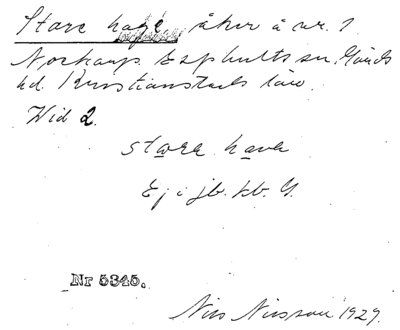 Stare hage, åker å nr. 1
Norharp Esphults sn. Gärds
hd. Kristianstads län.
Wid 2.
stare have
Ej i jb. kb. G.
Nr 5345.
Nils Nilsson 1929.